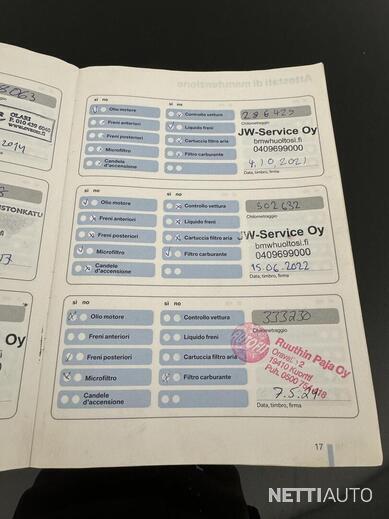 Attestati di manutenzione
8063
OLARI
P. 010 439 6040
2014
STONKATU
Oy
si no
si no
Olio motore
Controllo vettura
Freni anteriori
Liquido freni
Freni posteriori
Cartuccia filtro aria
Microfiltro
Filtro carburante
Candele
d'accensione
286425
Chilometraggio
JW-Service Oy
bmwhuoltosi.fi
0409699000
4.10.2021
Data, timbro, firma
si no
si no
Olio motore
Controllo vettura
Freni anteriori
Liquido freni
Freni posteriori
Cartuccia filtro aria
Microfiltro
Filtro carburante
Candele
d'accensione
302632
Chilometraggio
JW-Service Oy
bmwhuoltosi.fi
0409699000
15.06.2022
Data, timbro, firma
si no
si no
Olio motore
Controllo vettura
Freni anteriori
Liquido freni
Freni posteriori
Cartuccia filtro aria
Microfiltro
Filtro carburante
Candele
d'accensione
333230
Chilometraggio
Ruuthin Paja Oy
19410 Kuortti
Puh. 0500 754 418
7.5.24
Data, timbro, firma
17
NETTIAUTO